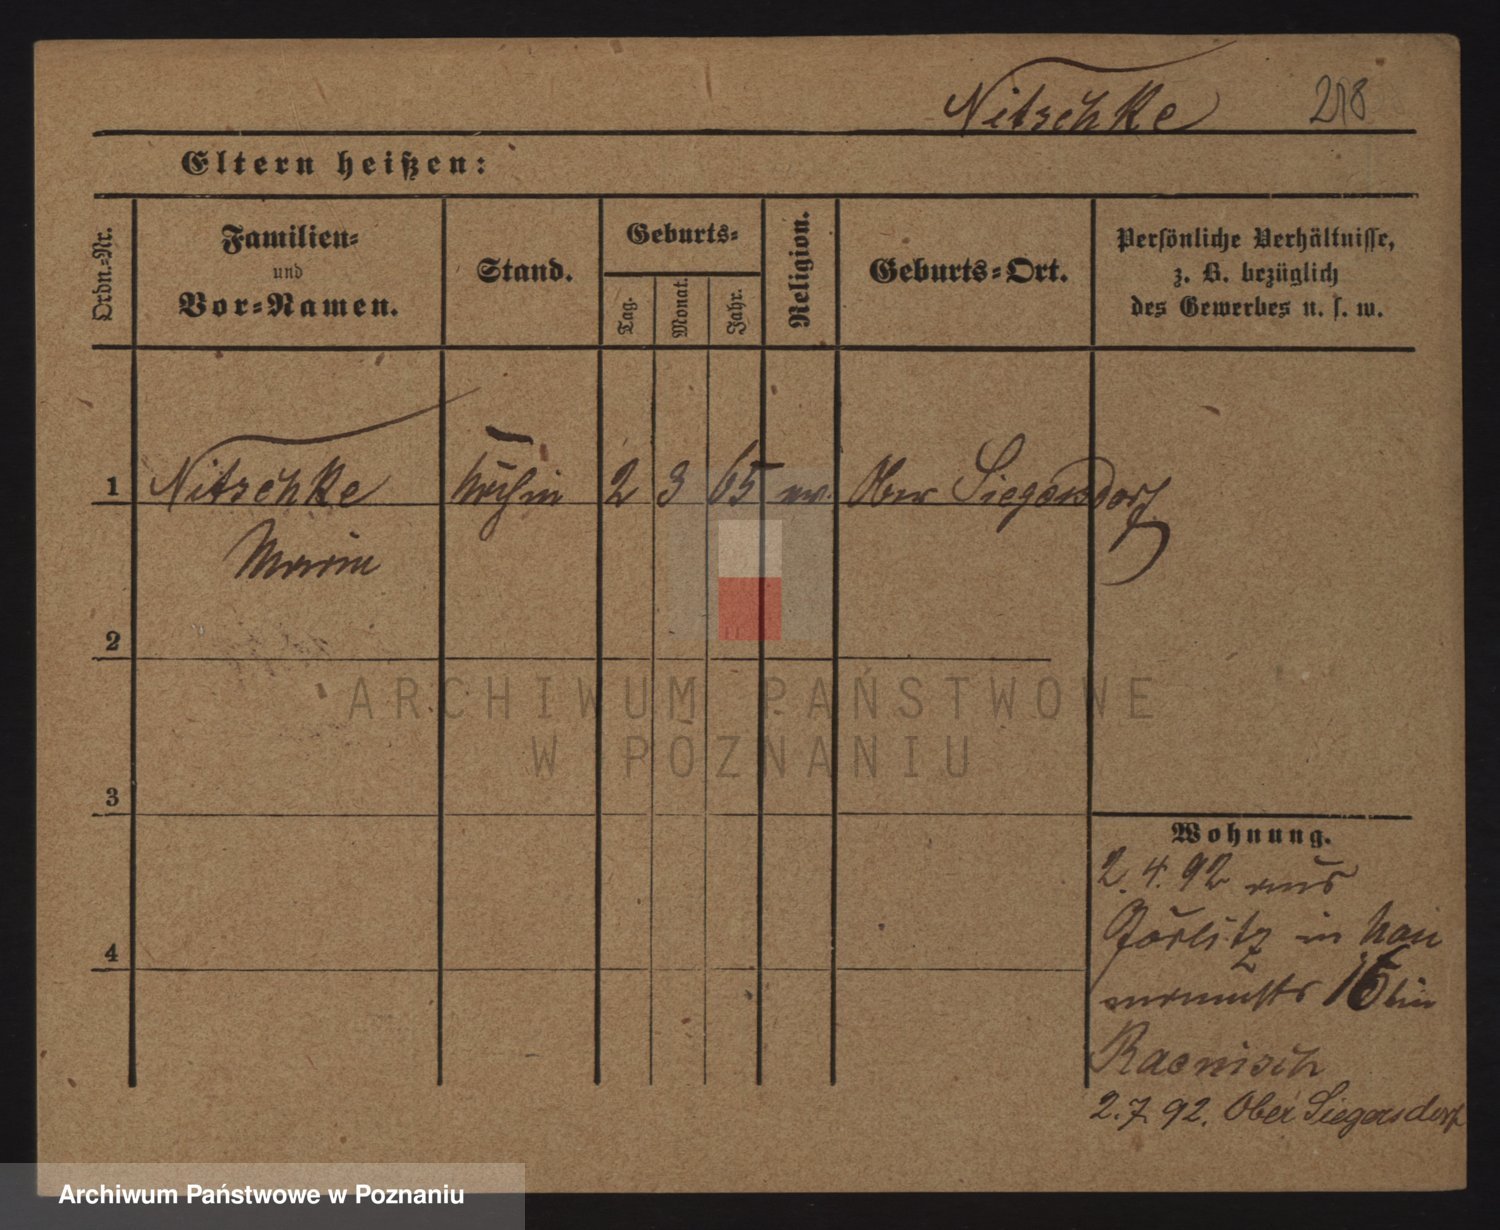 Nitschke 218
Eltern heißen:
Ordn.-Nr.
Familien-
und
Vor-Namen.
Stand.
Geburts-
Tag.
Monat.
Jahr.
Religion.
Geburts-Ort.
Persönliche Verhältnisse,
z. B. bezüglich
des Gewerbes u. s. w.
1 Nitschke Köchin 2 3 65 ev. Ober Siegersdorf
Marie
2
ARCHIWUM PAŃSTWOWE
W POZNANIU
3
Wohnung.
2.4.92 aus
Görlitz in
16 bei
2.7.92. Ober Siegersdorf
4
Archiwum Państwowe w Poznaniu